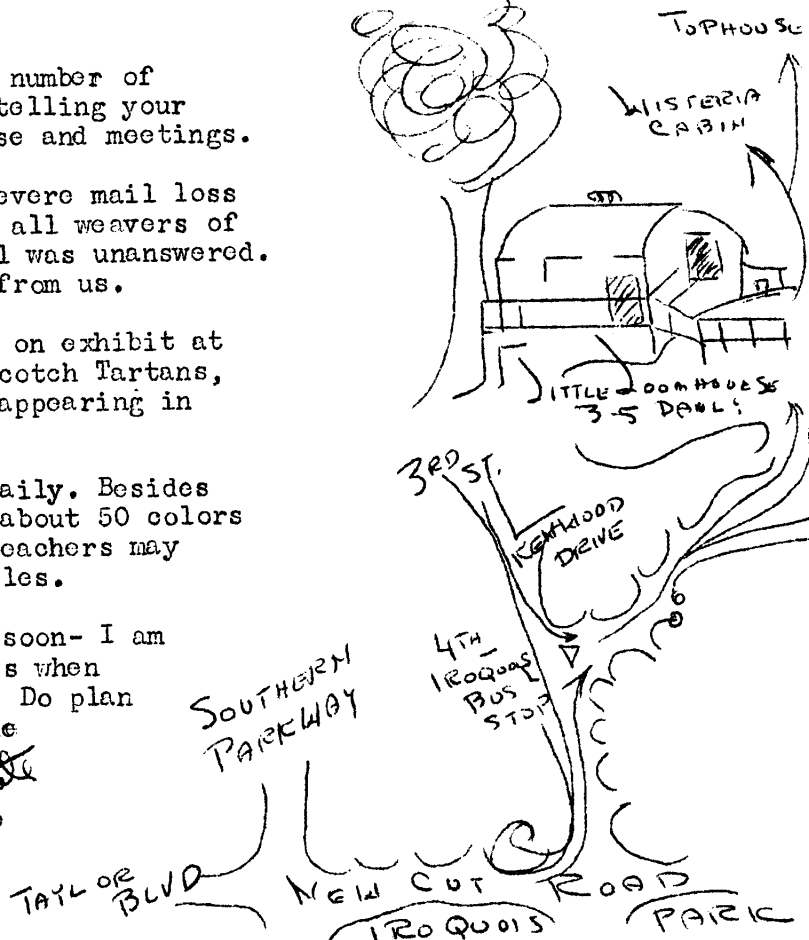 number of
telling your
se and meetings.
evere mail loss
all weavers of
l was unanswered.
from us.
on exhibit at
cotch Tartans,
appearing in
aily. Besides
about 50 colors
eachers may
les.
soon- I am
s when
Do plan
e
TOPHOUSE
WISTERIA
CABIN
LITTLE LOOMHOUSE
3-5 DAILY
3RD ST.
KENWOOD
DRIVE
4TH
IROQUOIS
BUS
STOP
SOUTHERN
PARKWAY
TAYLOR
BLVD
NEW CUT ROAD
IROQUOIS PARK